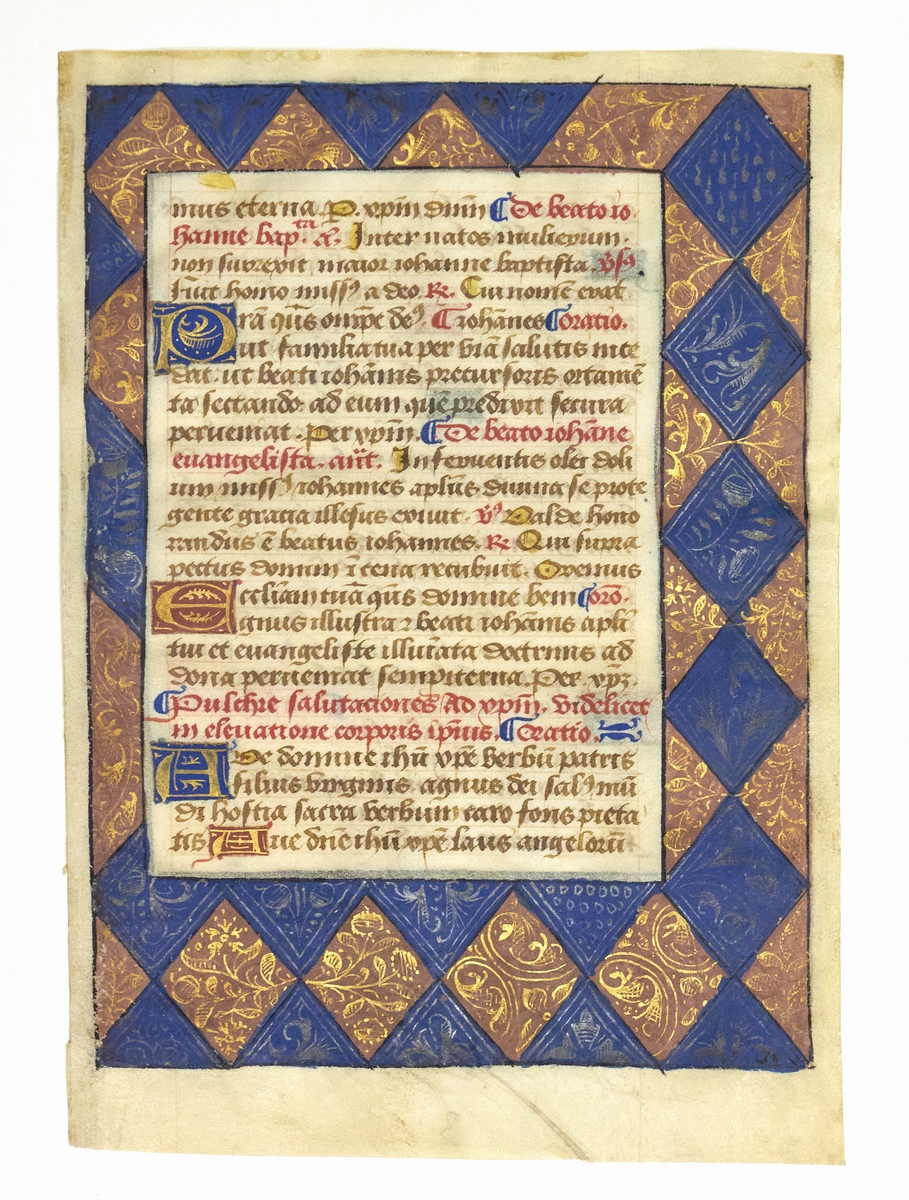 mus eterna. P. xp̄m dn̄m ¶ De beato io
hanne bap.ta A. Inter natos mulierum.
non surrexit maior iohanne baptista. v̄sꝰ
Fuit homo missꝰ a deo. R. Cui nomē erat
Prā qūs om̄pe deꝰ. ¶ iohānes ¶ oratio.
ut familia tua per viā salutis ince
dat. ut beati iohānis precursoris ortamē
ta sectando. ad eum quē predixit secura
perveniat. Per xp̄m. ¶ De beato iohāne
euangelista. an̄t. In ferventis olei doli
um missꝰ iohannes apl̄us divina se prote
gente gracia illesus exivit. v̄ꝰ Valde hono
randus ē beatus iohannes. R. Qui supra
pectus domini ī cena recubuit. Oremus
Eccl̄iam tuā qūs domine beni ¶ orō.
gnus illustra ꝛ beati iohānis apl̄i
tui et euangeliste illuīata doctrinis ad
dona perveniat sempiterna. Per. xp̄ꝫ.
¶ Pulchre salutaciones Ad xp̄m. videlicet
in elevatione corporis ip̄ius. ¶ Oratio.
AVe domine ih̄u xp̄e verbū patris
filius virginis. agnus dei salꝰ mū
di hostia sacra verbum caro fons pieta
tis Ave dn̄e ih̄u xp̄e laus angelorū